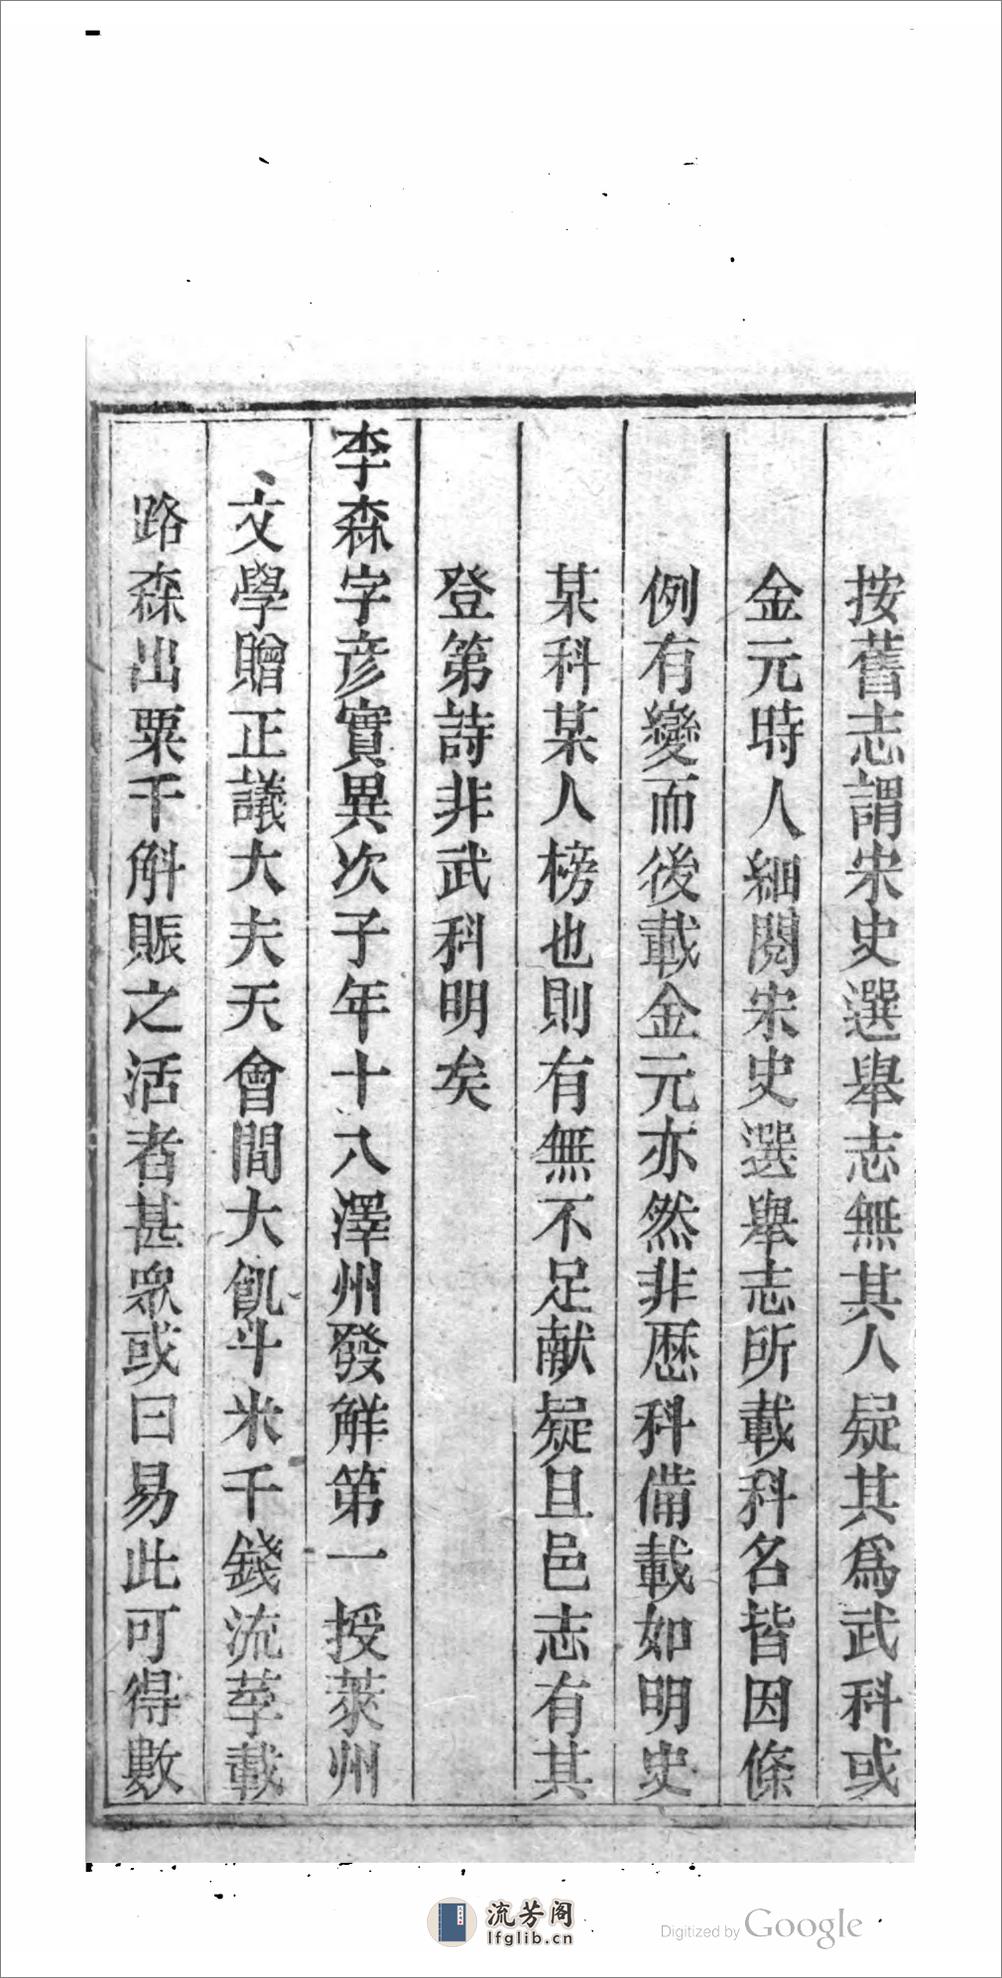 按舊志謂宋史選舉志無其人疑其爲武科或
金元時人細閱宋史選舉志所載科名皆因條
例有變而後載金元亦然非歷科備載如明史
某科某人榜也則有無不足献疑且邑志有其
登第詩非武科明矣
李森字彦實異次子年十八澤州發解第一授萊州
文學贈正議大夫天會間大飢斗米千錢流莩載
路森出粟千斛賑之活者甚衆或曰易此可得數
流芳阁
lfglib.cn
Digitized by Google